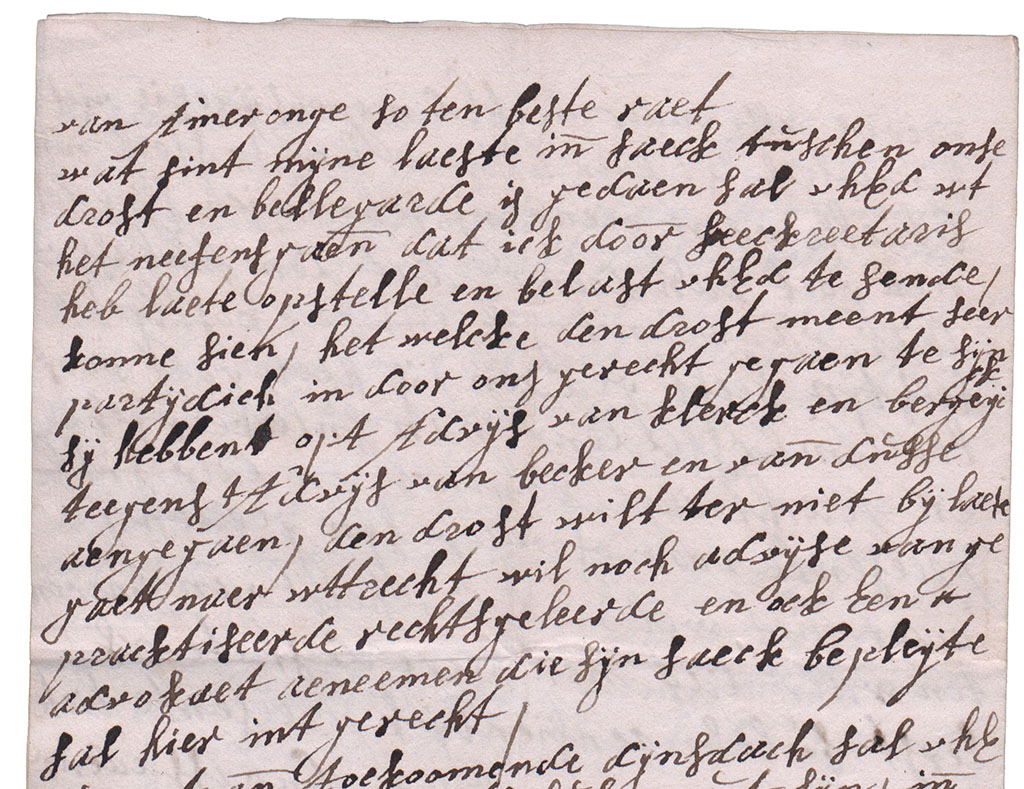 van Ameronge so ten beste raet
wat sint mijne laeste in saeck tuschen onse
drost en bellegarde is gedaen sal uhEd wt
het neefensgaen dat ick door seeckreetaris
heb laete opstelle en belast uhEd te sende,
konne sien, het welcke den drost meent seer
partijdich in door ons gerecht gegaen te sijn
sij hebbent opt Advijs van klerck en bergeijck
teegens t Advijs van becker en van dusse
aengegaen, den drost wilt ter niet bij laete
gaet naer uttrecht wil noch advijse van ge
practiseerde rechtsgeleerde en ock Een
advokaet aeneemen die sijn saeck bepleijte
sal hier int gerecht,
toekoomende dijnsdach sal uhE